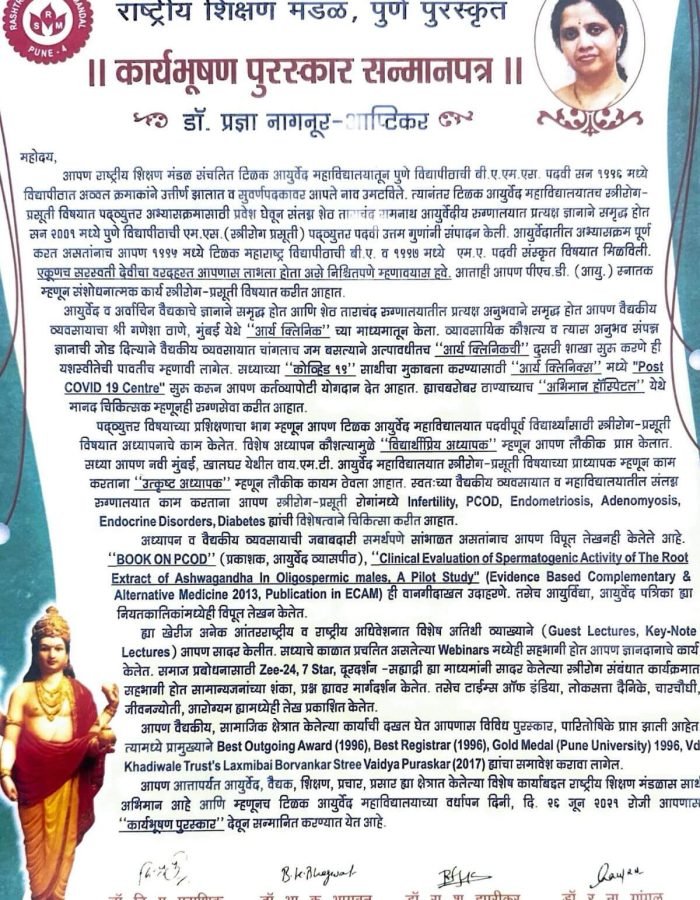 राष्ट्रीय शिक्षण मंडळ, पुणे पुरस्कृत
RSM
PUNE - 4
॥ कार्यभूषण पुरस्कार सन्मानपत्र ॥
डॉ. प्रज्ञा नागनूर-आप्टिकर
महोदय,
आपण राष्ट्रीय शिक्षण मंडळ संचलित टिळक आयुर्वेद महाविद्यालयातून पुणे विद्यापीठाची बी.ए.एम.एस. पदवी सन १९९६ मध्ये
विद्यापीठात अव्वल क्रमाकांने उत्तीर्ण झालात व सुवर्णपदकावर आपले नाव उमटविले. त्यानंतर टिळक आयुर्वेद महाविद्यालयातच स्त्रीरोग-
प्रसूती विषयात पदव्युत्तर अभ्यासक्रमासाठी प्रवेश घेवून संलग्न शेठ ताराचंद रामनाथ आयुर्वेदीय रुग्णालयात प्रत्यक्ष ज्ञानाने समृद्ध होत
सन २००१ मध्ये पुणे विद्यापीठाची एम.एस.(स्त्रीरोग प्रसूती) पदव्युत्तर पदवी उत्तम गुणांनी संपादन केली. आयुर्वेदातील अभ्यासक्रम पूर्ण
करत असतांनाच आपण १९९५ मध्ये टिळक महाराष्ट्र विद्यापीठाची बी.ए. व १९९७ मध्ये एम.ए. पदवी संस्कृत विषयात मिळविली.
एकूणच सरस्वती देवीचा वरदहस्त आपणास लाभला होता असे निश्चितपणे म्हणावयास हवे. आत्ताही आपण पीएच.डी. (आयु.) स्नातक
म्हणून संशोधनात्मक कार्य स्त्रीरोग-प्रसूती विषयात करीत आहात.
आयुर्वेद व अर्वाचिन वैद्यकाचे ज्ञानाने समृद्ध होत आणि शेठ ताराचंद रुग्णालयातील प्रत्यक्ष अनुभवाने समृद्ध होत आपण वैद्यकीय
व्यवसायाचा श्री गणेशा ठाणे, मुंबई येथे ''आर्य क्लिनिक'' च्या माध्यमातून केला. व्यावसायिक कौशल्य व त्यास अनुभव संपन्न
ज्ञानाची जोड दिल्याने वैद्यकीय व्यवसायात चांगलाच जम बसल्याने अल्पावधीतच ''आर्य क्लिनिकची'' दुसरी शाखा सुरू करणे ही
यशस्वीतेची पावतीच म्हणावी लागेल. सध्याच्या ''कोव्हिड १९'' साथीचा मुकाबला करण्यासाठी ''आर्य क्लिनिक्स'' मध्ये "Post
COVID 19 Centre" सुरू करून आपण कर्तव्यापोटी योगदान देत आहात. ह्याचबरोबर ठाण्याच्याच ''अभिमान हॉस्पिटल'' येथे
मानद चिकित्सक म्हणूनही रुग्णसेवा करीत आहात.
पदव्युत्तर विषयाच्या प्रशिक्षणाचा भाग म्हणून आपण टिळक आयुर्वेद महाविद्यालयात पदवीपूर्व विद्यार्थ्यांसाठी स्त्रीरोग-प्रसूती
विषयात अध्यापनाचे काम केलेत. विशेष अध्यापन कौशल्यामुळे ''विद्यार्थीप्रिय अध्यापक'' म्हणून आपण लौकीक प्राप्त केलात.
सध्या आपण नवी मुंबई, खालघर येथील वाय.एम.टी. आयुर्वेद महाविद्यालयात स्त्रीरोग-प्रसूती विषयाच्या प्राध्यापक म्हणून काम
करताना ''उत्कृष्ट अध्यापक'' म्हणून लौकीक कायम ठेवला आहात. स्वतःच्या वैद्यकीय व्यवसायात व महाविद्यालयातील संलग्न
रुग्णालयात काम करताना आपण स्त्रीरोग-प्रसूती रोगांमध्ये Infertility, PCOD, Endometriosis, Adenomyosis,
Endocrine Disorders, Diabetes ह्यांची विशेषत्वाने चिकित्सा करीत आहात.
अध्यापन व वैद्यकीय व्यवसायाची जबाबदारी समर्थपणे सांभाळत असतांनाच आपण विपूल लेखनही केलेले आहे.
''BOOK ON PCOD'' (प्रकाशक, आयुर्वेद व्यासपीठ), "Clinical Evaluation of Spermatogenic Activity of The Root
Extract of Ashwagandha In Oligospermic males, A Pilot Study" (Evidence Based Complementary &
Alternative Medicine 2013, Publication in ECAM) ही वानगीदाखल उदाहरणे. तसेच आयुर्विद्या, आयुर्वेद पत्रिका ह्या
नियतकालिकांमध्येही विपूल लेखन केलेत.
ह्या खेरीज अनेक आंतरराष्ट्रीय व राष्ट्रीय अधिवेशनात विशेष अतिथी व्याख्याने (Guest Lectures, Key-Note
Lectures) आपण सादर केलीत. सध्याचे काळात प्रचलित असलेल्या Webinars मध्येही सहभागी होत आपण ज्ञानदानाचे कार्य
केलेत. समाज प्रबोधनासाठी Zee-24, 7 Star, दूरदर्शन -सह्याद्री ह्या माध्यमांनी सादर केलेल्या स्त्रीरोग संबंधात कार्यक्रमात
सहभागी होत सामान्यजनांच्या शंका, प्रश्न ह्यावर मार्गदर्शन केलेत. तसेच टाईम्स ऑफ इंडिया, लोकसत्ता दैनिके, चारचौघी,
जीवनज्योती, आरोग्यम ह्यामध्येही लेख प्रकाशित केलेत.
आपण वैद्यकीय, सामाजिक क्षेत्रात केलेल्या कार्याची दखल घेत आपणास विविध पुरस्कार, पारितोषिके प्राप्त झाली आहेत.
त्यामध्ये प्रामुख्याने Best Outgoing Award (1996), Best Registrar (1996), Gold Medal (Pune University) 1996, Vd
Khadiwale Trust's Laxmibai Borvankar Stree Vaidya Puraskar (2017) ह्यांचा समावेश करावा लागेल.
आपण आत्तापर्यंत आयुर्वेद, वैद्यक, शिक्षण, प्रचार, प्रसार ह्या क्षेत्रात केलेल्या विशेष कार्याबद्दल राष्ट्रीय शिक्षण मंडळास सार्थ
अभिमान आहे आणि म्हणूनच टिळक आयुर्वेद महाविद्यालयाच्या वर्धापन दिनी, दि. २६ जून २०२१ रोजी आपणास
''कार्यभूषण पुरस्कार'' देवून सन्मानित करण्यात येत आहे.
B.K.Bhagwat